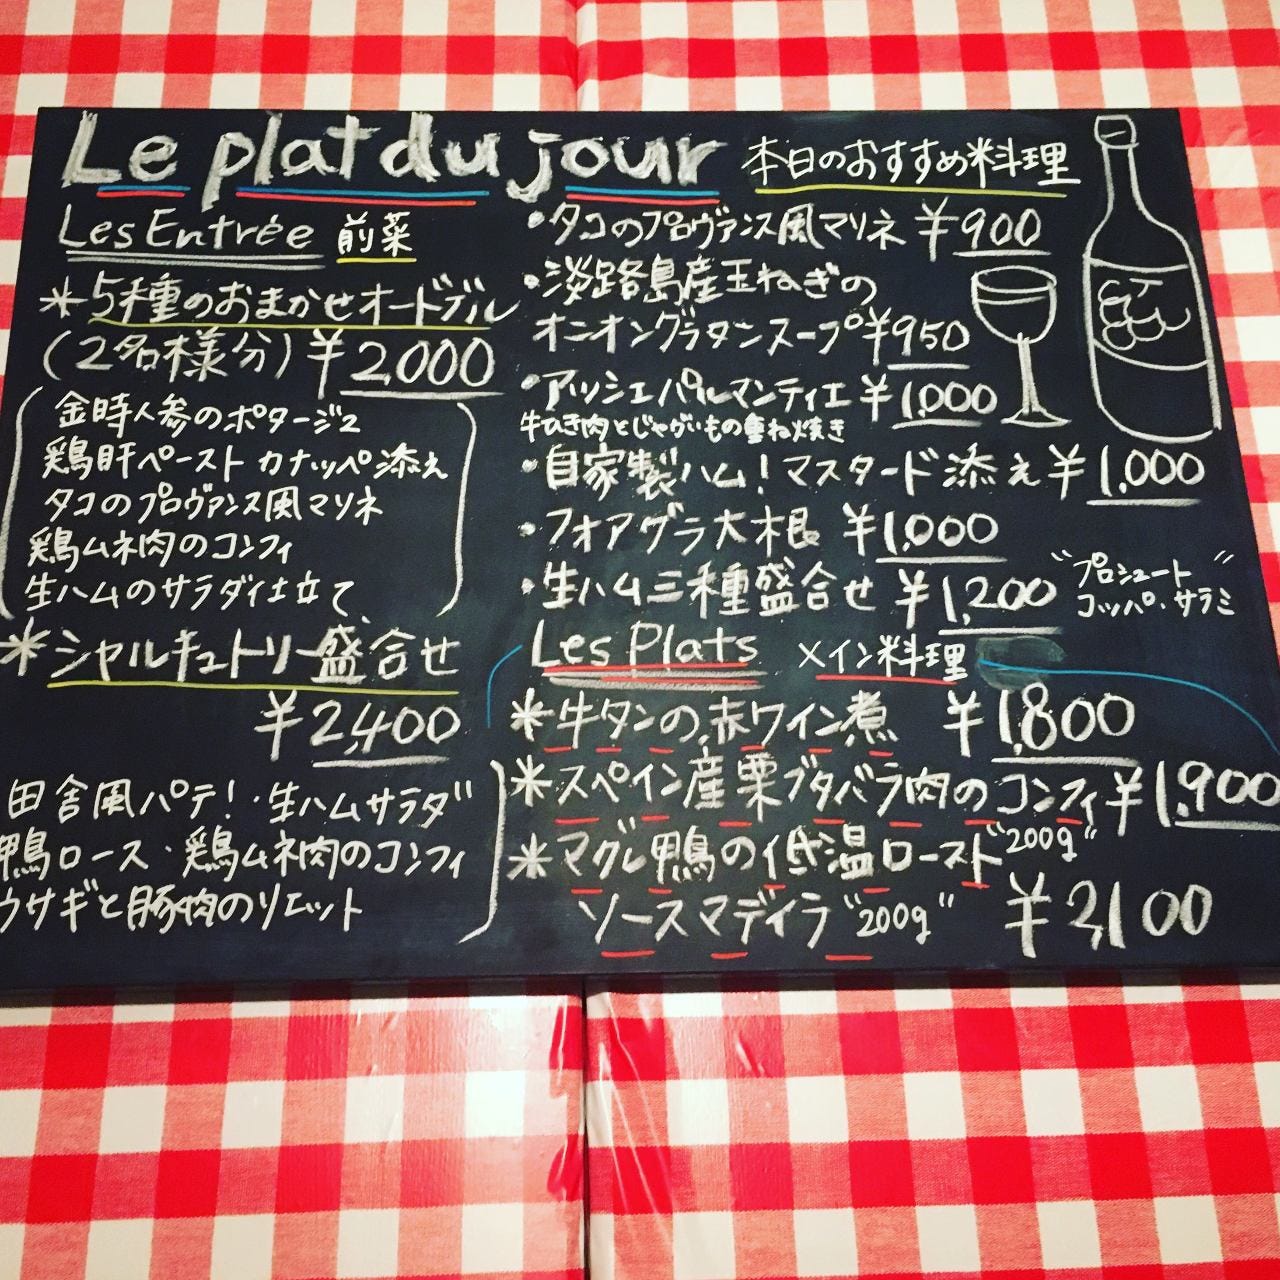 Le plat du jour 本日のおすすめ料理
Les Entrée 前菜
*5種のおまかせオードブル
(2名様分) ¥2,000
金時人参のポタージュ
鶏肝ペースト カナッペ添え
タコのプロヴァンス風マリネ
鶏ムネ肉のコンフィ
生ハムのサラダ仕立て
*シャルキュトリー盛合せ
¥2,400
田舎風パテ!・生ハムサラダ
鴨ロース・鶏ムネ肉のコンフィ
ウサギと豚肉のリエット
・タコのプロヴァンス風マリネ ¥900
・淡路島産玉ねぎの
オニオングラタンスープ ¥950
・アッシェパルマンティエ ¥1,000
牛ひき肉とじゃがいもの重ね焼き
・自家製ハム!マスタード添え ¥1,000
・フォアグラ大根 ¥1,000
・生ハム三種盛合せ ¥1,200
"プロシュート"
コッパ・サラミ
Les Plats メイン料理
*牛タンの赤ワイン煮 ¥1,800
*スペイン産栗ブタバラ肉のコンフィ ¥1,900
"200g"
*マグレ鴨の低温ロースト
ソースマディラ "200g" ¥2,100